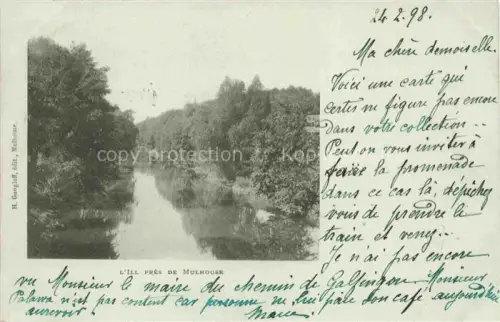 24-2.98.
Ma chère demoiselle.
Voici une carte qui
certes ne figure pas encore
dans votre collection..
Peut on vous inviter à
faire la promenade
dans ce cas là, dépichez
vous de prendre le
train et venez..
Je n'ai pas encore
vu Monsieur le maire du chemin de Galfingen. Monsieur
n'est pas content car personne ne lui paie son café aujourd'hui
aurevoir.
L'ILL PRÈS DE MULHOUSE
H. Gangloff, édit., Mulhouse.
copyright protection